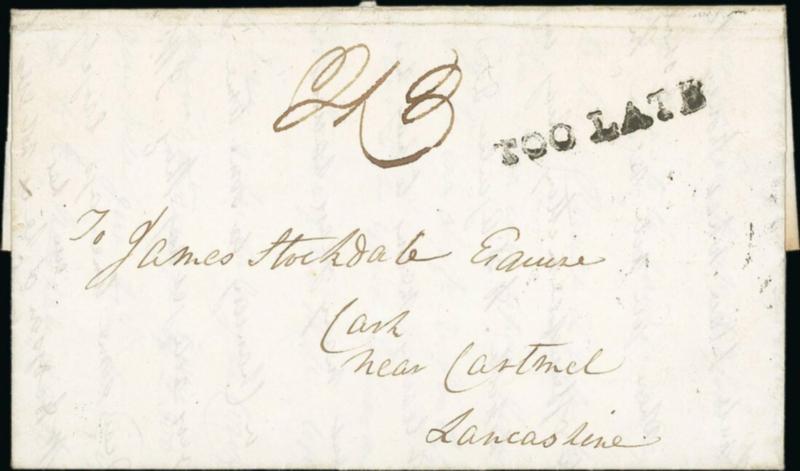 2/3
TOO LATE
To James Stockdale Esquire
Cark
near Cartmel
Lancashire